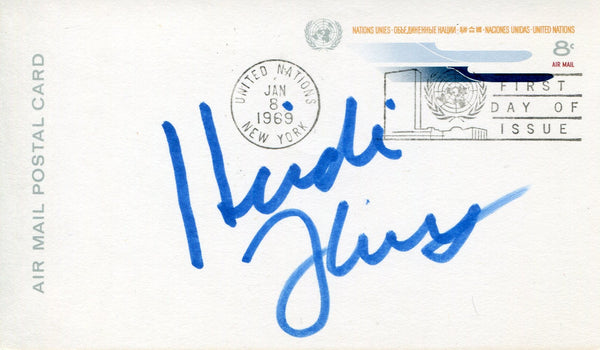 NATIONS UNIES · ОБЪЕДИНЕННЫЕ НАЦИИ · 聯合國 · NACIONES UNIDAS · UNITED NATIONS
8c
AIR MAIL
UNITED NATIONS
JAN
8
1969
NEW YORK
FIRST
DAY OF
ISSUE
AIR MAIL POSTAL CARD
Heidi